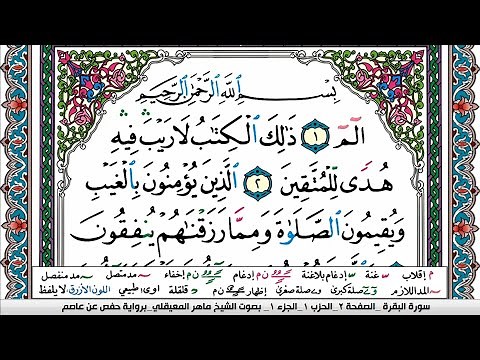 بِسْمِ ٱللَّهِ ٱلرَّحْمَٰنِ ٱلرَّحِيمِ
الٓمٓ ١ ذَٰلِكَ ٱلْكِتَٰبُ لَا رَيْبَ فِيهِ
هُدًى لِّلْمُتَّقِينَ ٢ ٱلَّذِينَ يُؤْمِنُونَ بِٱلْغَيْبِ
وَيُقِيمُونَ ٱلصَّلَوٰةَ وَمِمَّا رَزَقْنَٰهُمْ يُنفِقُونَ
م إقلاب س غنة س إدغام بلاغنة ن م إدغام ن م إخفاء مد متصل مد منفصل
مد اللازم صلة كبرى صلة صغرى إظهار ن م قلقلة اوى طبيعي اللون الأزرق لا يلفظ
سورة البقرة _الصفحة ٢_الحزب ١_الجزء ١_ بصوت الشيخ ماهر المعيقلي_برواية حفص عن عاصم